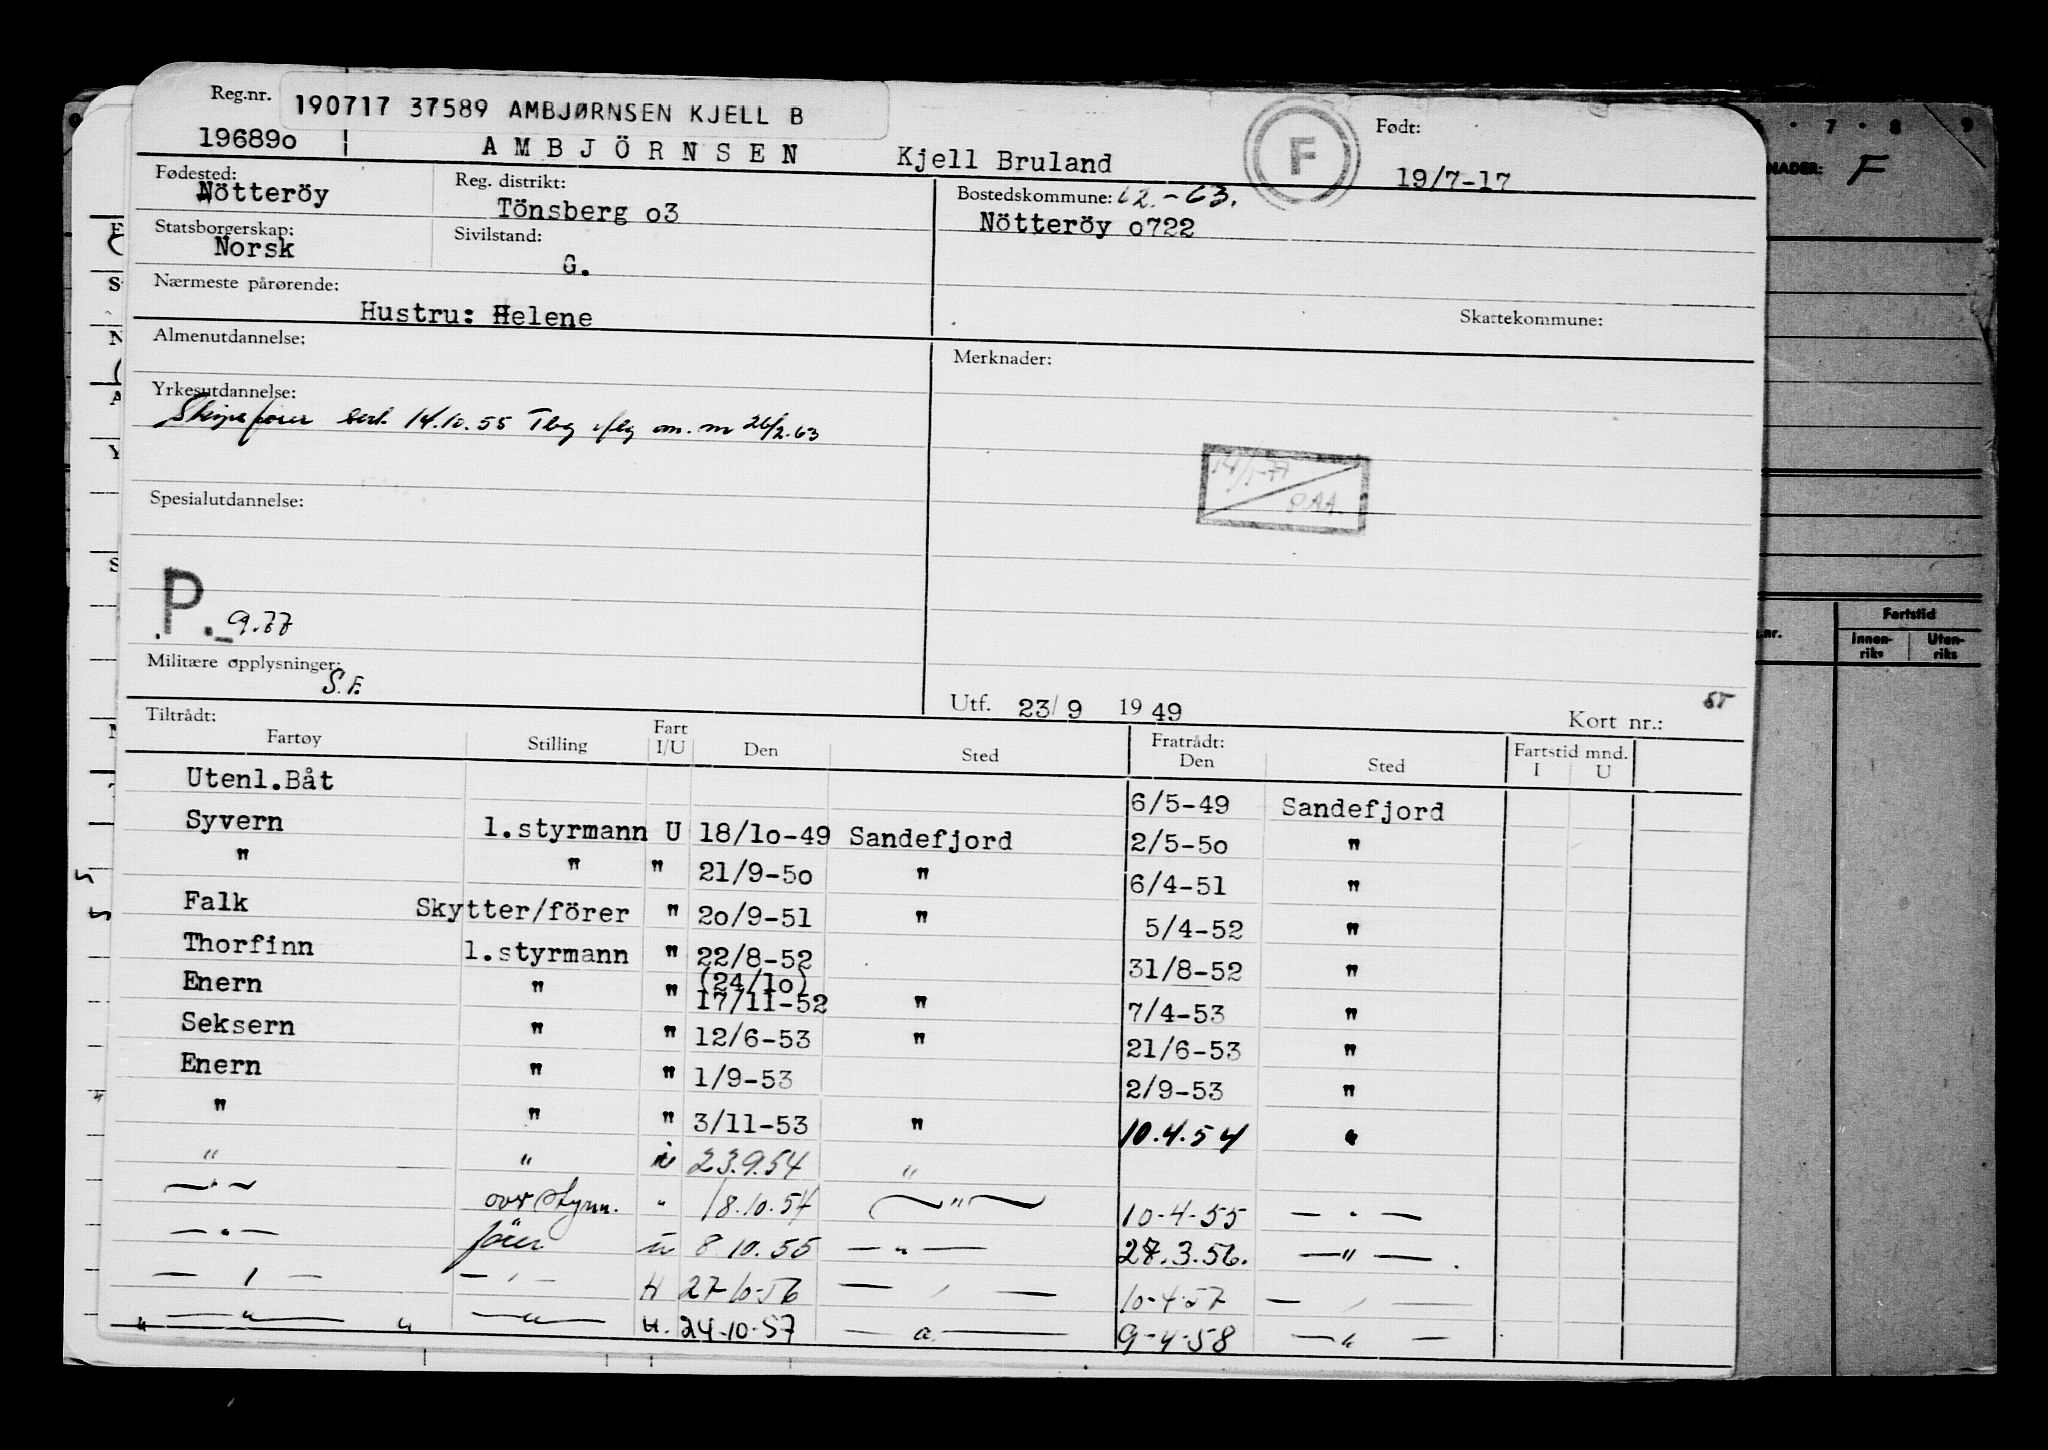 Reg.nr. 190717 37589 AMBJØRNSEN KJELL B
19689o AMBJÖRNSEN Kjell Bruland F Født: 19/7-17
Fødested: Nötteröy Reg. distrikt: Tönsberg o3 Bostedskommune: 62.-63. Nötteröy o722
Statsborgerskap: Norsk Sivilstand: G.
Nærmeste pårørende: Hustru: Helene Skattekommune:
Almenutdannelse: Merknader:
Yrkesutdannelse:
Skipsfører sert. 14.10.55 Tbg iflg an. m 26/2.63
14/1-77 OAA.
Spesialutdannelse:
P. 9.77
Militære opplysninger: S.F.
Utf. 23/9 1949 Kort nr.:
Tiltrådt: Fart Fratrådt: Fartstid mnd.
Fartøy Stilling I/U Den Sted Den Sted I U
Utenl.Båt 6/5-49 Sandefjord
Syvern 1.styrmann U 18/1o-49 Sandefjord 2/5-5o "
" " " 21/9-5o " 6/4-51 "
Falk Skytter/förer " 2o/9-51 " 5/4-52 "
Thorfinn 1.styrmann " 22/8-52 31/8-52 "
(24/1o)
Enern " " 17/11-52 " 7/4-53 "
Seksern " " 12/6-53 " 21/6-53 "
Enern " " 1/9-53 2/9-53 "
" " " 3/11-53 " 10.4.54 "
" " u 23.9.54 "
—"— overstyrm. " 18.10.54 —"— 10-4-55 —"—
—"— förer u 8.10.55 —"— 27.3.56. —"—
—"— —"— H 27-10-56 —"— 10-4-57 —"—
—"— —"— H. 24-10-57 —"— 9-4-58 —"—
7 8 9
NADER: F
Fartstid
Innen-riks Uten-riks